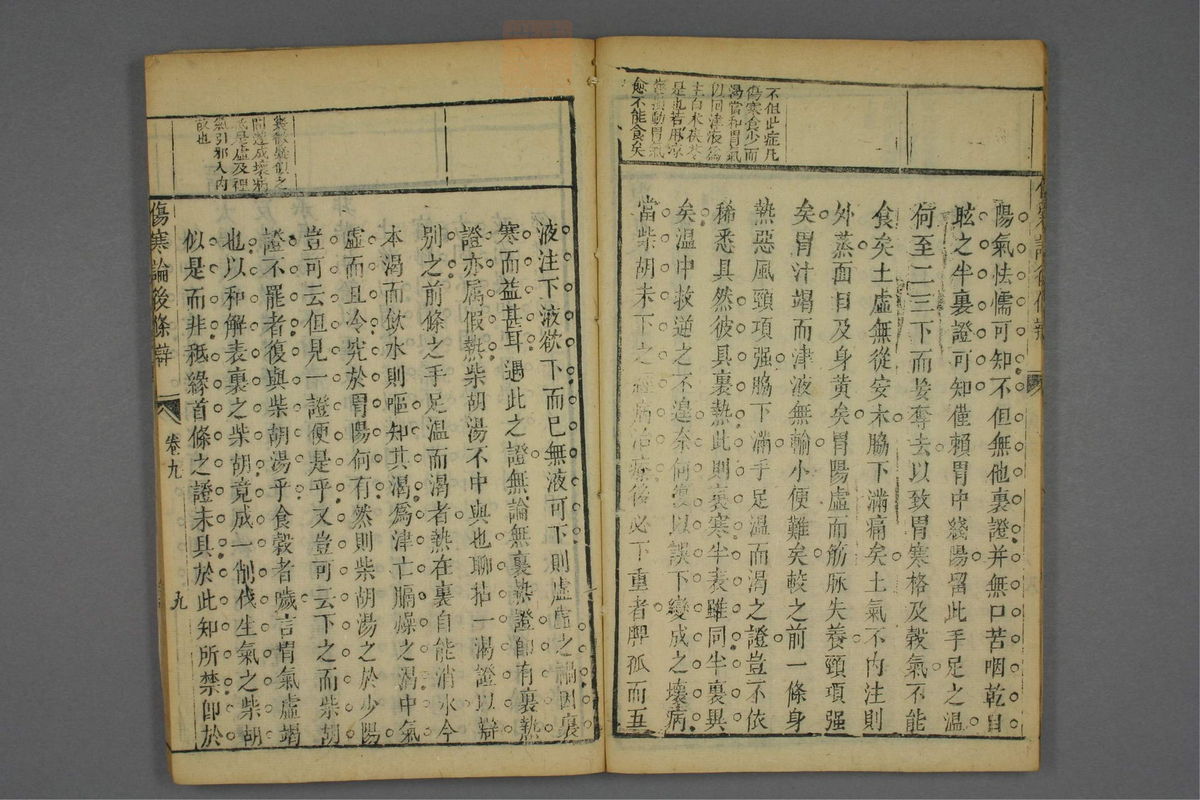 不但此症凡
傷寒食少而
渴當和胃氣
以回津液為
主白朮茯苓
是也若用涼
動胃氣
愈不能食矣
陽氣怯懦可知不但無他裏證并無口苦咽乾目
眩之半裏證可知僅賴胃中綫陽留此手足之温
何至二三下而妄奪去以致胃寒格及穀氣不能
食矣土虛無從安木脇下滿痛矣土氣不內注則
外蒸面目及身黃矣胃陽虛而筋脉失養頸項强
矣胃汁竭而津液無輸小便難矣較之前一條身
熱惡風頸項强脇下滿手足温而渴之證豈不依
稀悉具然彼具裏熱此則裏寒半表雖同半裏異
矣温中救逆之不遑奈何復以誤下變成之壞病
當柴胡未下之病治療後必下重者脾孤而五
液注下液欲下而已無液可下則虛虛之禍因裏
寒而益甚耳遇此之證無論無裏熱證卽有裏熱
證亦属假熱柴胡湯不中與也聊拈一渴證以辯
别之前條之手足温而渴者熱在裏自能消水今
本渴而飲水則嘔知其渴爲津亡膈燥之渴中氣
虛而且冷究於胃陽何有然則柴胡湯之於少陽
豈可云但見一證便是乎又豈可云下之而柴胡
證不罷者復與柴胡湯乎食穀者噦言胃氣虛竭
也以和解表裏之柴胡竟成一削伐生氣之柴胡
似是而非秪緣首條之證未具於此知所禁卽於
疑似之
間遂成壞病
氣是虛及裡
氣引邪入內
故也
傷寒論後條辯
卷九
九